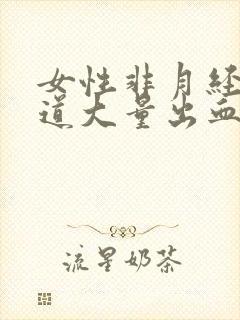 女性非月经
道大量出血
流星奶茶